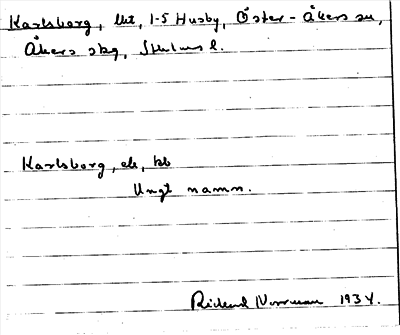 Karlsborg, lht, 1-5 Husby, Öster-Åkers sn,
Åkers skg, Sthlms l.
Karlsborg, ck, bb
Ungt namn.
Rickard Norrman 1934.